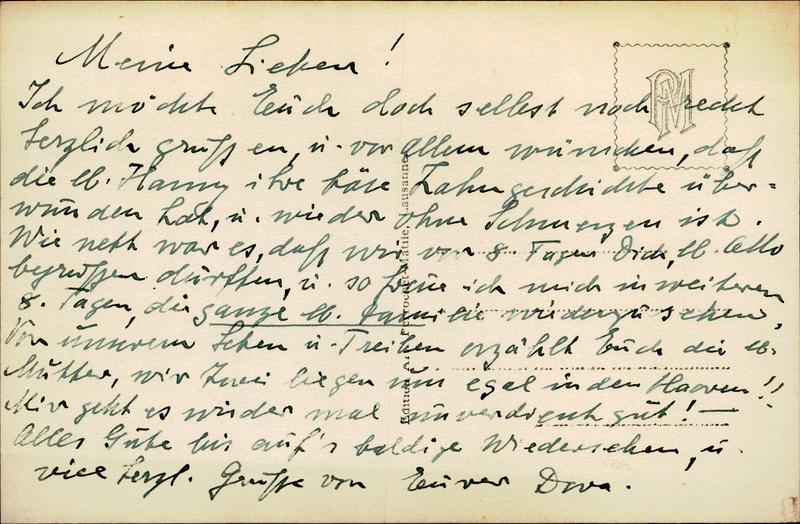 Meine Lieben!
Ich möchte Euch doch selbst noch recht
herzlich grüßen, u. vor allem wünschen, daß
die lb. Hanny ihre böse Zahngeschichte über-
wunden hat, u. wieder ohne Schmerzen ist.
Wie nett war es, daß wir vor 8. Tagen Dich, lb. Otto
begrüßen durften, u. so freue ich mich in weiteren
8. Tagen, die ganze lb. Familie wiederzusehen,
Von unserem Leben u. Treiben erzählt Euch die lb.
Mutter, wir zwei liegen uns egal in den Haaren!!
Mir geht es wieder mal unverdient gut! —
Alles Gute bis auf's baldige Wiedersehen, u.
viele herzl. Grüße von Eurer Dora.
PM
Lausanne